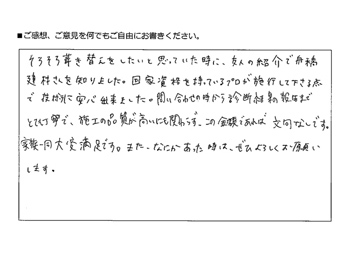 ■ご感想、ご意見を何でもご自由にお書きください。
そろそろ葺き替えをしたいと思っていた時に、友人の紹介で舟橋
建材さんを知りました。国家資格を持っているプロが施行して下さる点
で技術に安心出来ました。問い合わせの時から診断結果の報告まで
とても丁寧で、施工の品質が高いにも関わらず、この金額であれば文句なしです。
家族一同大変満足です。また、なにかあった時は、ぜひよろしくお願い
します。